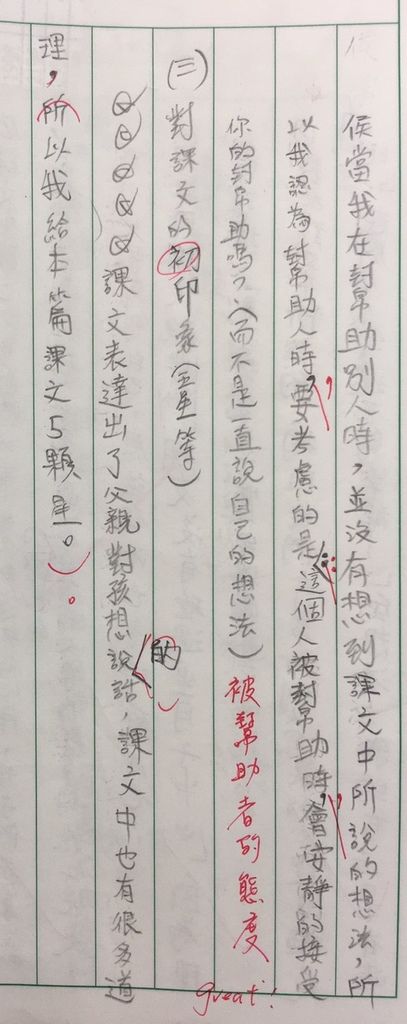 侯當我在幫助別人時，並沒有想到課文中所說的想法，所
以我認為幫助人時，要考慮的是：這個人被幫助時，會安靜的接受
你的幫助嗎？（而不是一直說自己的想法）被幫助者的態度
great!
(三)對課文的初印象（五星等）
☆☆☆☆☆課文表達出了父親對孩想說的話，課文中也有很多道
理，所以我給本篇課文5顆星。